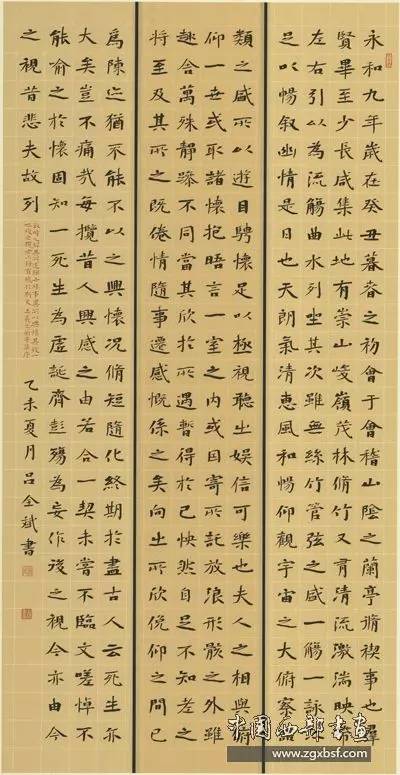 永和九年歲在癸丑暮春之初會于會稽山陰之蘭亭脩稧事也羣
賢畢至少長咸集此地有崇山峻嶺茂林脩竹又有清流激湍映帶
左右引以為流觴曲水列坐其次雖無絲竹管弦之盛一觴一詠亦
足以暢叙幽情是日也天朗氣清惠風和暢仰觀宇宙之大俯察品
類之盛所以遊目騁懷足以極視聽之娛信可樂也夫人之相與俯
仰一世或取諸懷抱晤言一室之內或因寄所託放浪形骸之外雖
趣舍萬殊靜躁不同當其欣於所遇暫得於己怏然自足不知老之
將至及其所之既倦情隨事遷感慨係之矣向之所欣俛仰之間已
為陳迹猶不能不以之興懷況脩短隨化終期於盡古人云死生亦
大矣豈不痛哉每攬昔人興感之由若合一契未嘗不臨文嗟悼不
能喻之於懷固知一死生為虛誕齊彭殤為妄作後之視今亦由今
之視昔悲夫故列
叙時人錄其所述雖世殊事異所以興懷其致一
也後之攬者亦將有感於斯文
乙未夏月呂全斌書
中國西部書畫
www.zgxbsf.com